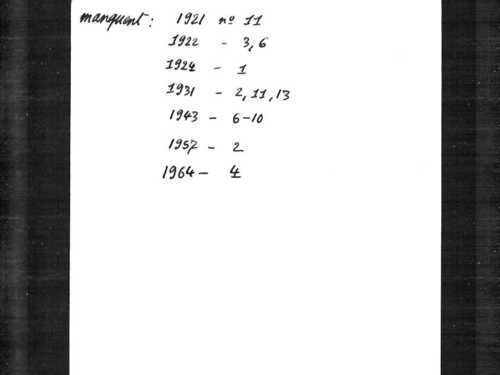 manquent: 1921 nº 11
1922 - 3, 6
1924 - 1
1931 - 2, 11, 13
1943 - 6-10
1957 - 2
1964 - 4